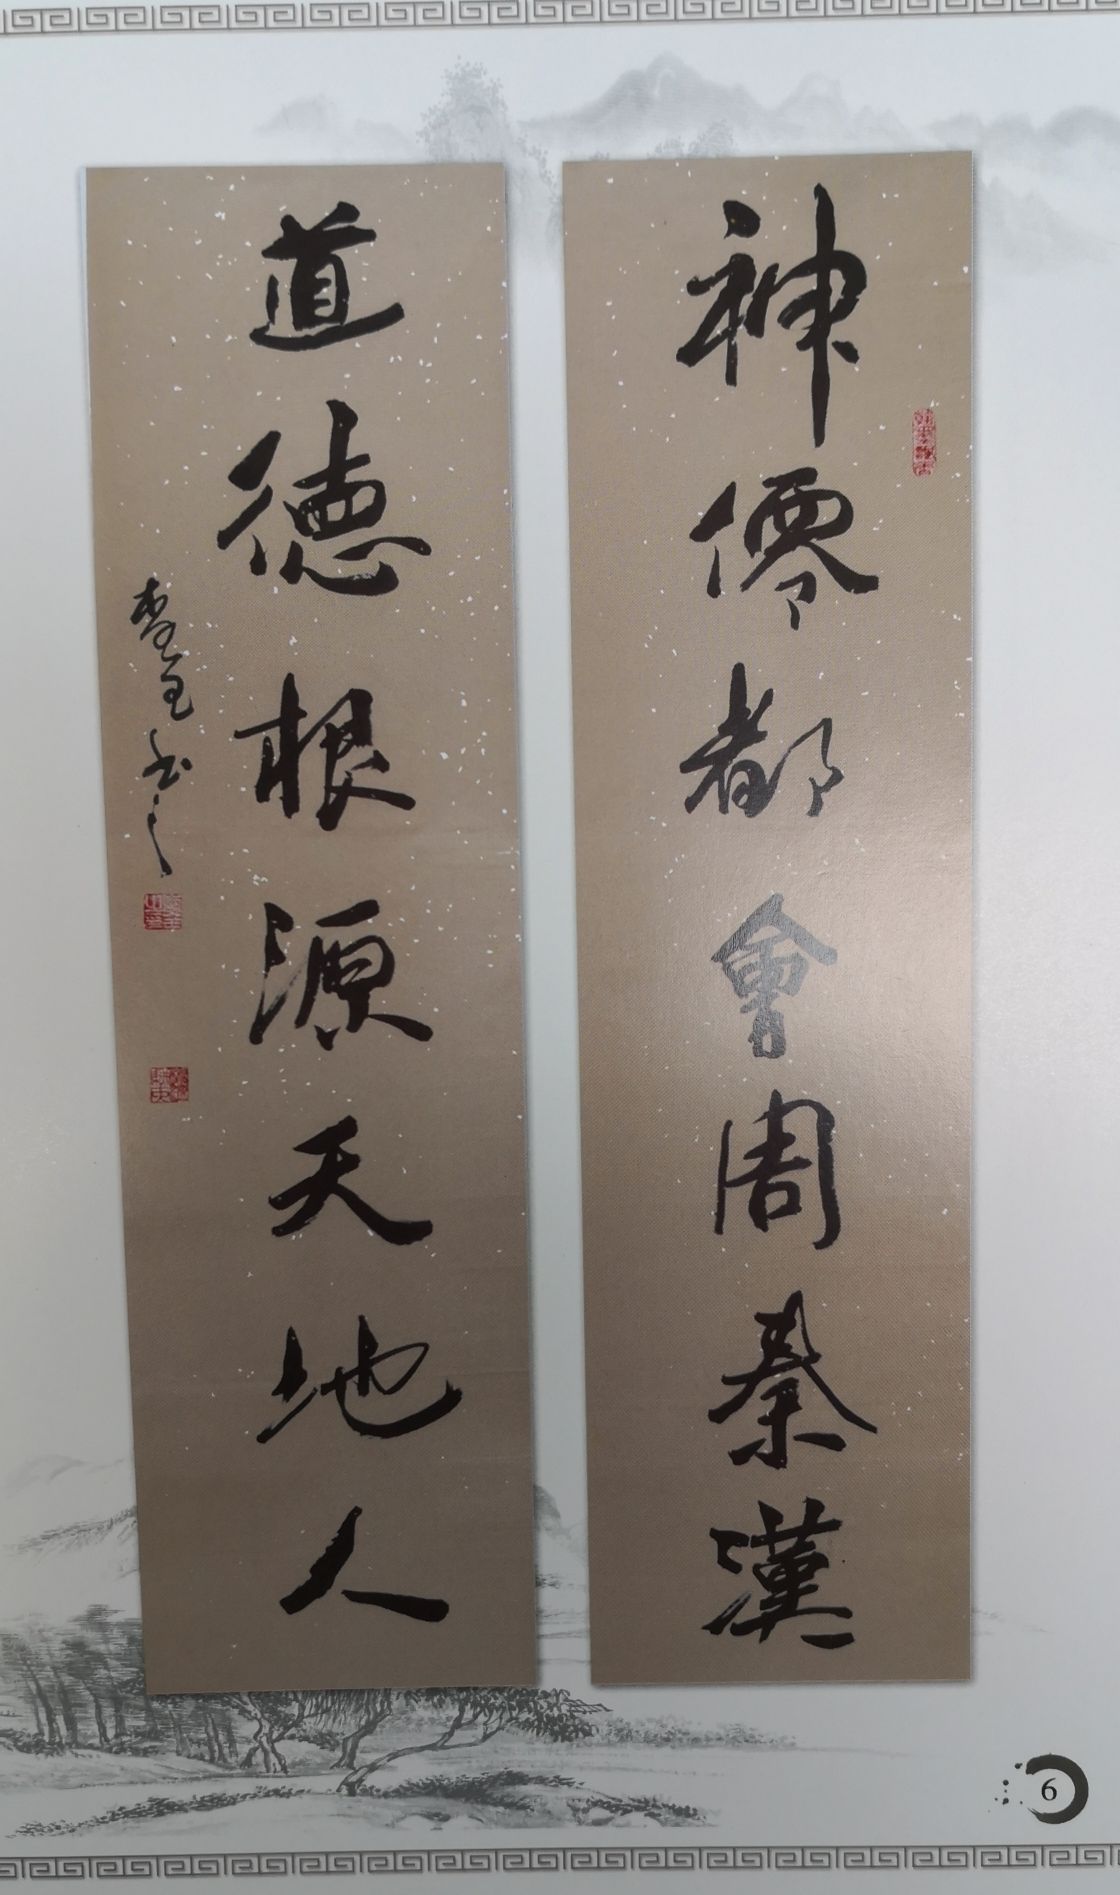 神僊都會周秦漢
道德根源天地人
書之
6